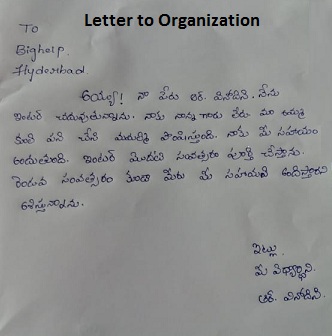 Letter to Organization
To
Bighelp.
Hyderabad.
అయ్యా! నా పేరు ఆర్. వినోదిని. నేను
ఇంటర్ చదువుతున్నాను. నాకు నాన్న గారు లేరు. మా అమ్మ
కూలి పని చేసి మమ్మల్ని పోషిస్తుంది. నాకు మీ సహాయం
అందుతుంది. ఇంటర్ మొదటి సంవత్సరం పూర్తి చేస్తాను.
రెండవ సంవత్సరం కూడా మీరు మీ సహాయం అందిస్తారని
ఆశిస్తున్నాను.
ఇట్లు.
మీ విద్యార్థిని.
ఆర్. వినోదిని.